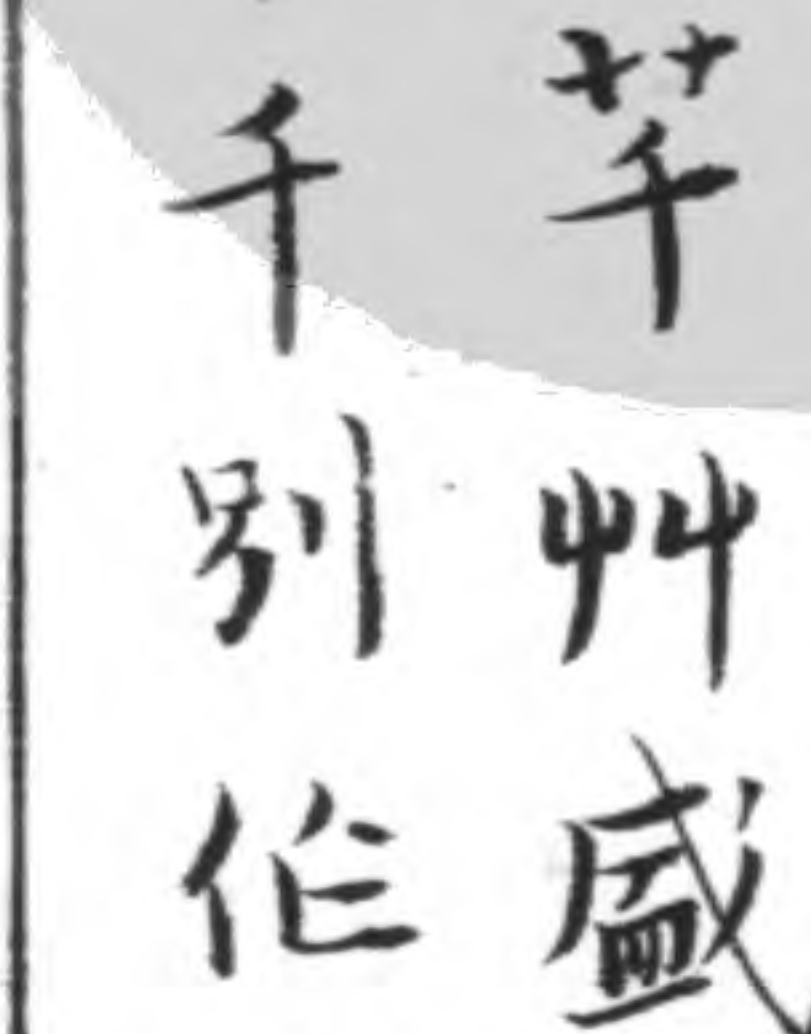 芊艸盛
千別作